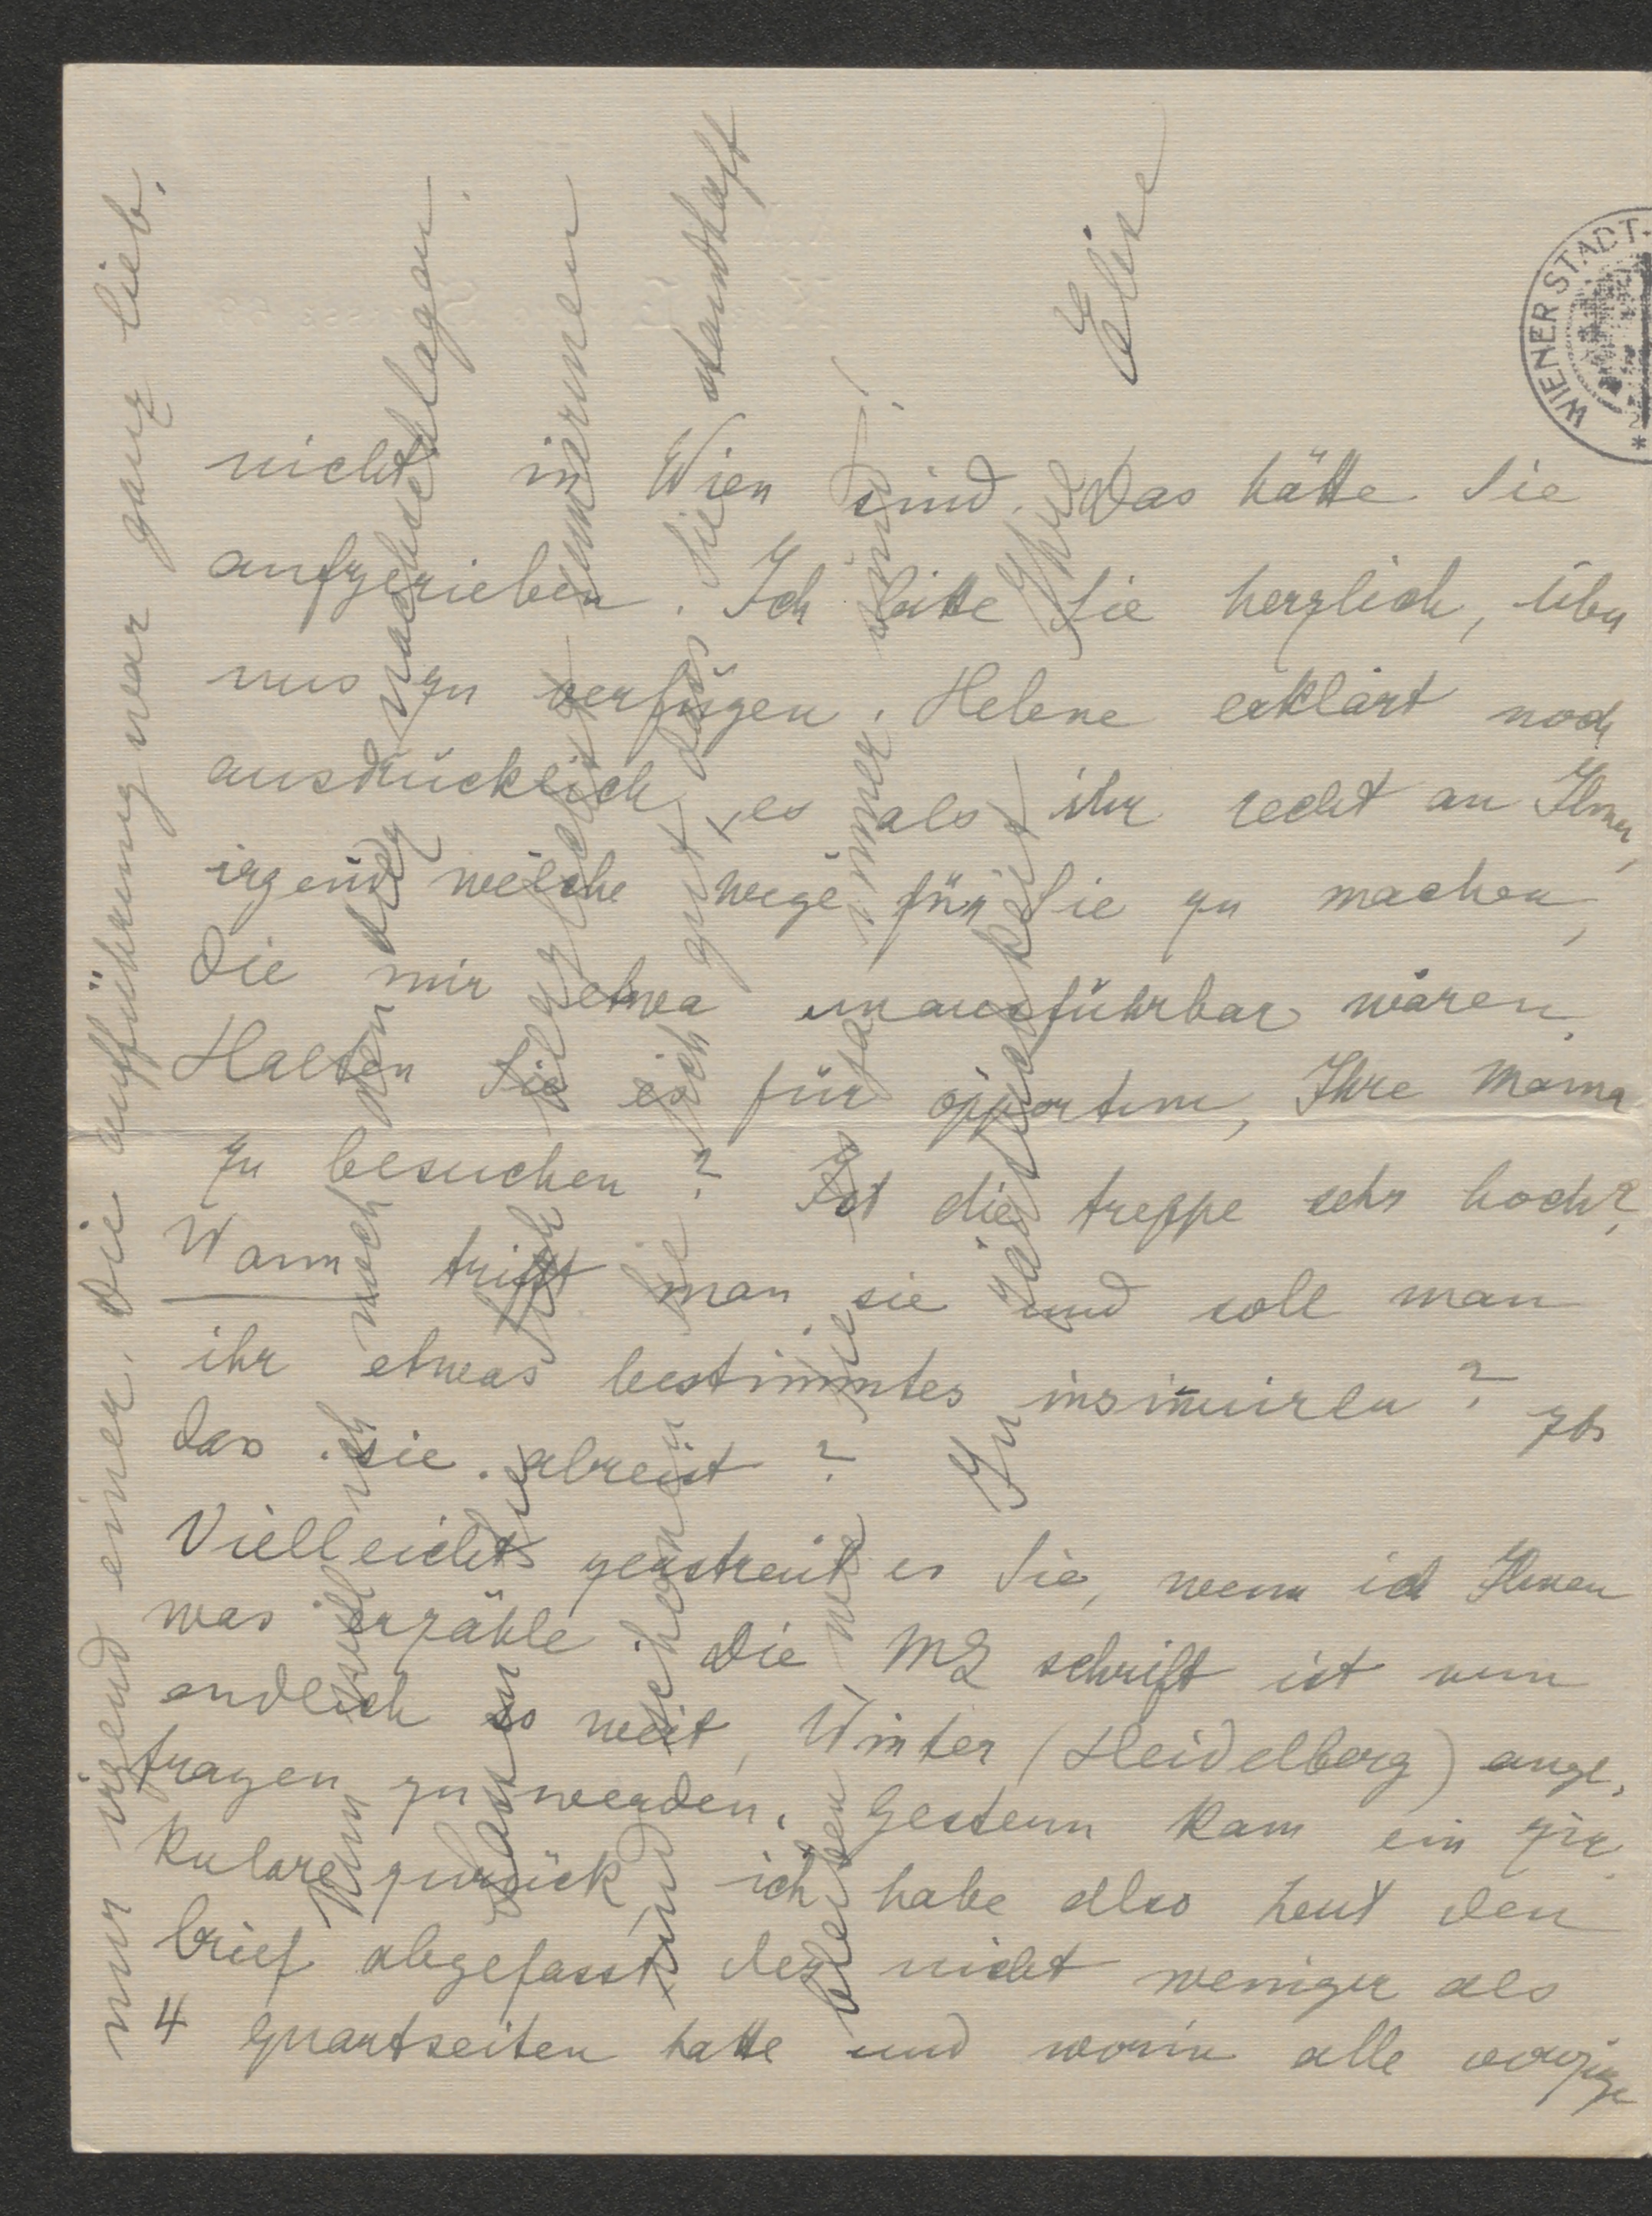 nicht in Wien sind. Das hätte Sie
aufgerieben. Ich bitte Sie herzlich, über
uns zu verfügen. Helene erklärt noch
ausdrücklich, es als ihr recht an Ihnen,
irgend welche wege für Sie zu machen,
die mir etwa unausführbar wären.
Halten Sie es für opportun, Ihre Mama
zu besuchen? Ist die treppe sehr hoch?
Wann trifft man sie und soll man
ihr etwas bestimmtes insinuiren? zb
das sie abreist?
Vielleicht zerstreut es Sie, wenn ich Ihnen
was erzähle. Die MZ schrift ist nun
endlich so weit, Winter (Heidelberg) ange,
tragen zu werden. Gestern kam ein zir
kulare zurück, ich habe also heut den
brief abgefasst, der nicht weniger als
4 quartseiten hatte und worin alle vorzüge
nur irgend einer. Die aufführung war ganz lieb.
Nun will ich noch den
nachschlagen.
Lassen Sie sich herzlichst umarmen
und schonen Sie sich gut, dass Sie standhaft
bleiben wie Sie es ja immer sind!
In Zärtlichkeit Ihre
Elise
WIENER STADT-